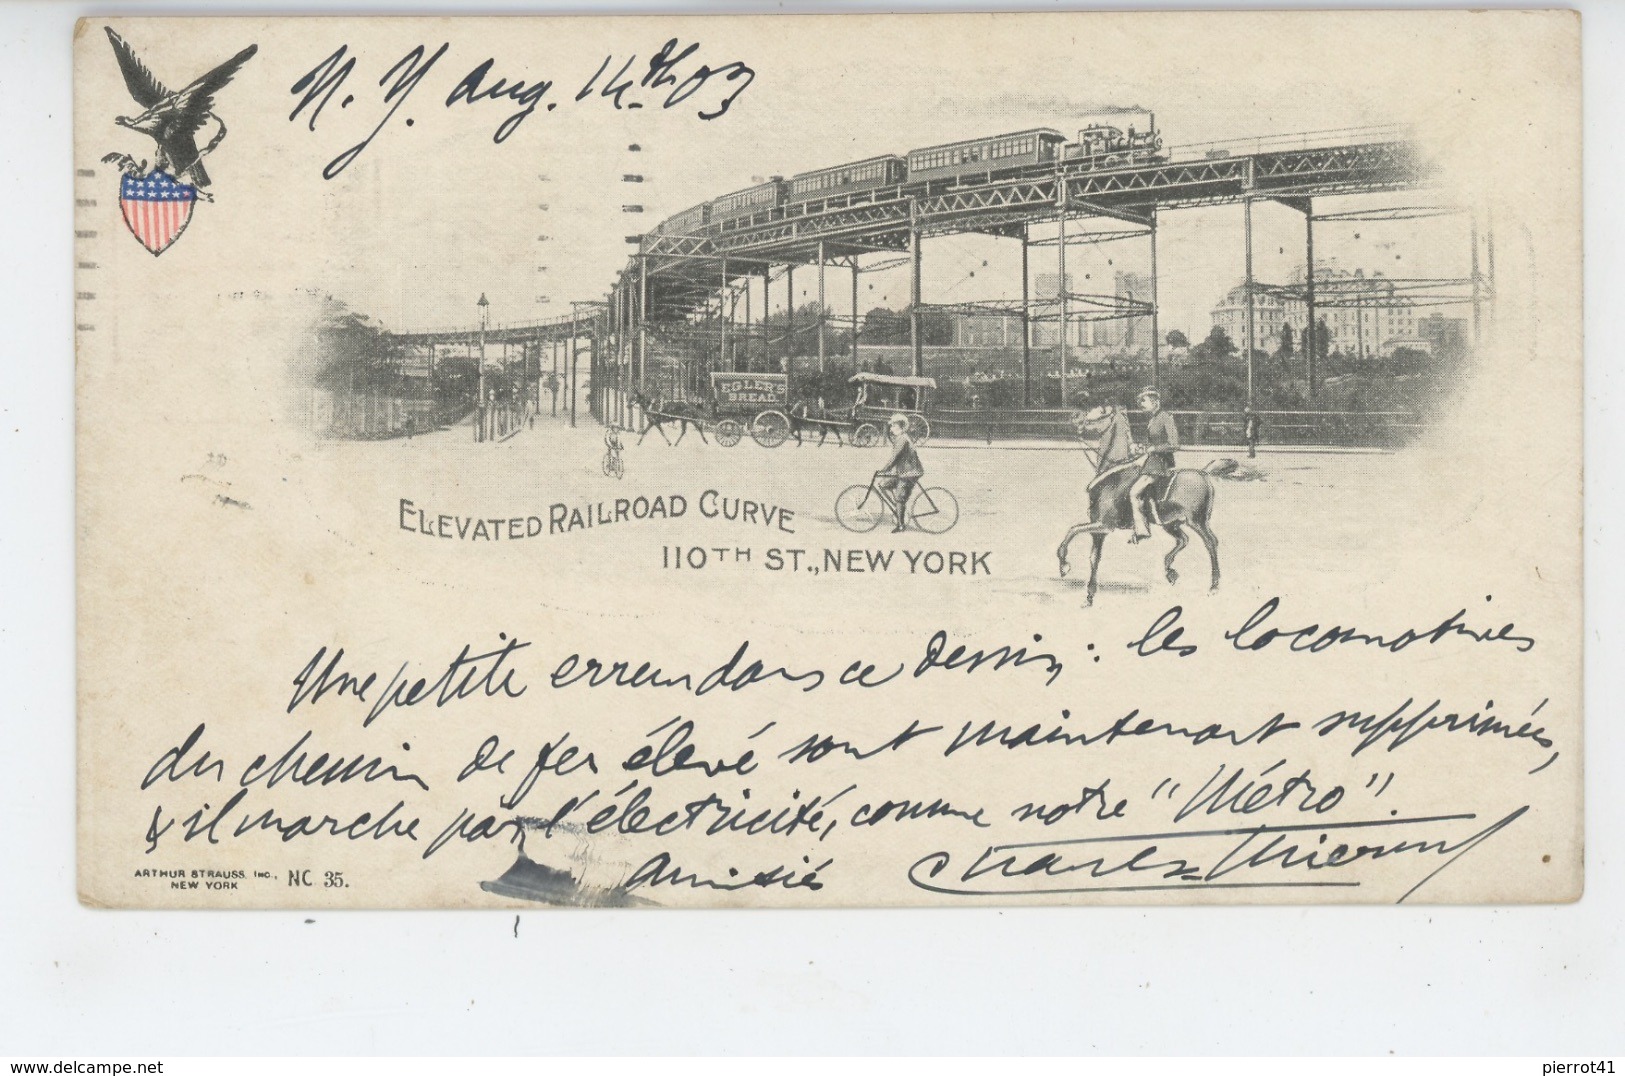 N. Y. Aug. 14th 03
EGLER'S
BREAD.
ELEVATED RAILROAD CURVE
110TH ST., NEW YORK
Une petite erreur dans ce dessin : les locomotives
du chemin de fer élevé sont maintenant supprimées,
& il marche par l'électricité, comme notre "Métro".
Amitiés Charles
ARTHUR STRAUSS, INC.,
NEW YORK
NC 35.
delcampe.net
pierrot41